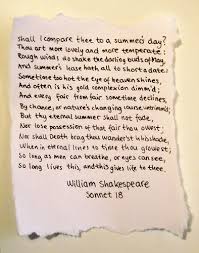 Shall I compare thee to a summer's day?
Thou art more lovely and more temperate:
Rough winds do shake the darling buds of May,
And summer's lease hath all to short a date:
Sometime too hot the eye of heaven shines,
And often is his gold complexion dimm'd;
And every fair from fair sometime declines,
By chance, or nature's changing course, untrimm'd;
But thy eternal summer shall not fade,
Nor lose possession of that fair thou owest;
Nor shall Death brag thou wander'st in his shade,
When in eternal lines to time thou growest;
So long as men can breathe, or eyes can see,
So long lives this, and this gives life to thee.
William Shakespeare
Sonnet 18